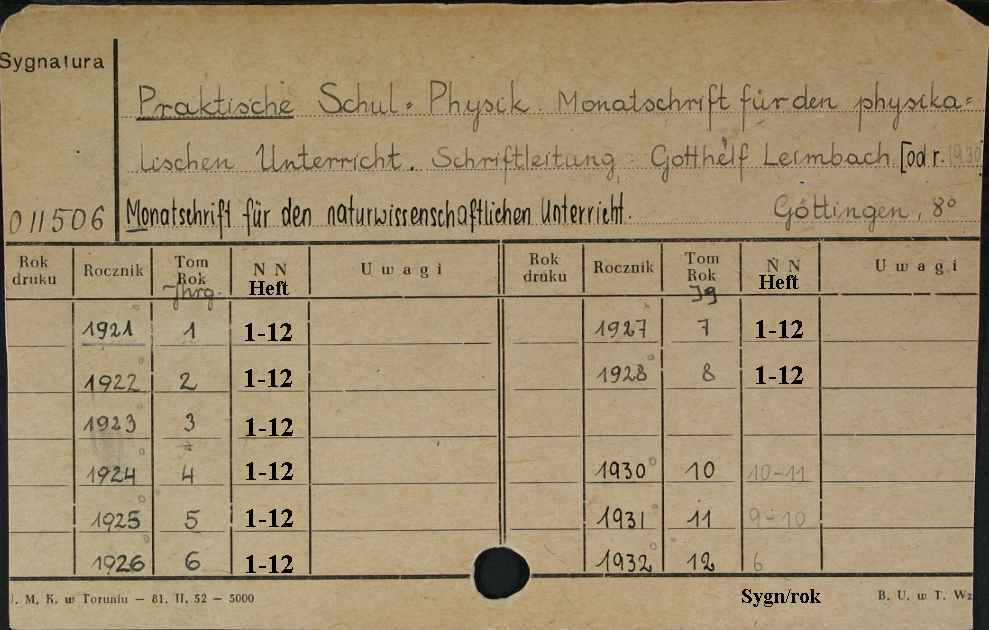 Sygnatura
Praktische Schul= Physik. Monatschrift für den physika=
lischen Unterricht. Schriftleitung: Gotthelf Leimbach. [od r. 1930
011506 Monatschrift für den naturwissenschaftlichen Unterricht. Göttingen, 8°
Rok druku Rocznik Tom Rok Jhrg. N N Heft Uwagi Rok druku Rocznik Tom Rok Jg N N Heft Uwagi
1921 1 1-12 1927 7 1-12
1922 2 1-12 1928 8 1-12
1923 3 1-12
1924 4 1-12 1930 10 10-11
1925 5 1-12 1931 11 9-10
1926 6 1-12 1932 12 6
. M. K. w Toruniu — 81. II. 52 — 5000 Sygn/rok B. U. w T. Wz